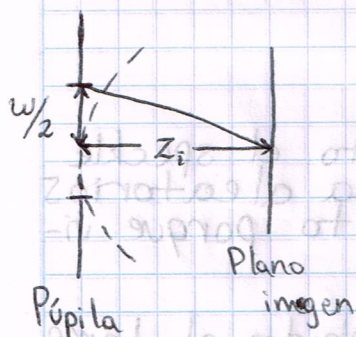 w/2
Zi
Plano
imagen
Púpila